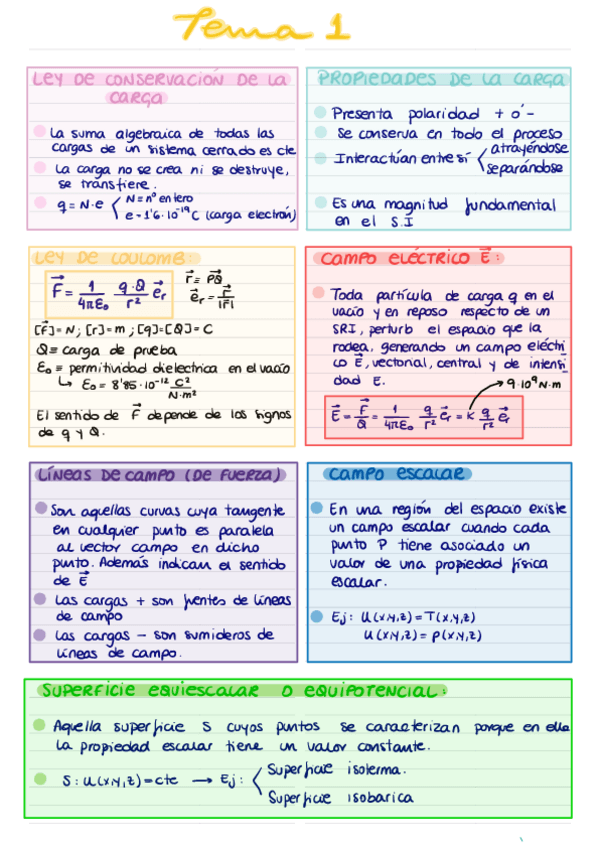 Tema 1
LEY DE CONSERVACIÓN DE LA
CARGA
La suma algebraica de todas las
cargas de un sistema cerrado es cte
La carga no se crea ni se destruye,
se transfiere.
q = N·e { N = nº entero
e = 1'6·10⁻¹⁹ C (carga electrón)
PROPIEDADES DE LA CARGA
Presenta polaridad + ó -
Se conserva en todo el proceso
Interactúan entre sí < atrayéndose
separándose
Es una magnitud fundamental
en el S.I
LEY DE COULOMB:
F⃗ = 1/4πε₀ q·Q/r² e⃗r
r⃗ = PQ⃗
e⃗r = r⃗/|r⃗|
[F⃗] = N ; [r] = m ; [q] = [Q] = C
Q ≡ carga de prueba
ε₀ ≡ permitividad dielectrica en el vacío
↳ ε₀ = 8'85·10⁻¹² C²/N·m²
El sentido de F⃗ depende de los signos
de q y Q.
CAMPO ELÉCTRICO E⃗:
Toda partícula de carga q en el
vacío y en reposo respecto de un
SRI, perturb el espacio que la
rodea, generando un campo eléctri
co E⃗, vectorial, central y de intensi
dad E.
9·10⁹ N·m
E⃗ = F⃗/Q = 1/4πε₀ q/r² e⃗r = K q/r² e⃗r
LÍNEAS DE CAMPO (DE FUERZA)
Son aquellas curvas cuya tangente
en cualquier punto es paralela
al vector campo en dicho
punto. Además indican el sentido
de E⃗
Las cargas + son fuentes de líneas
de campo
Las cargas - son sumideros de
líneas de campo.
CAMPO ESCALAR
En una región del espacio existe
un campo escalar cuando cada
punto P tiene asociado un
valor de una propiedad física
escalar.
Ej: U(x,y,z) = T(x,y,z)
U(x,y,z) = P(x,y,z)
SUPERFICIE EQUIESCALAR O EQUIPOTENCIAL:
Aquella superficie S cuyos puntos se caracterizan porque en ella
la propiedad escalar tiene un valor constante.
S: U(x,y,z) = cte → Ej: { Superficie isoterma.
Superficie isobarica